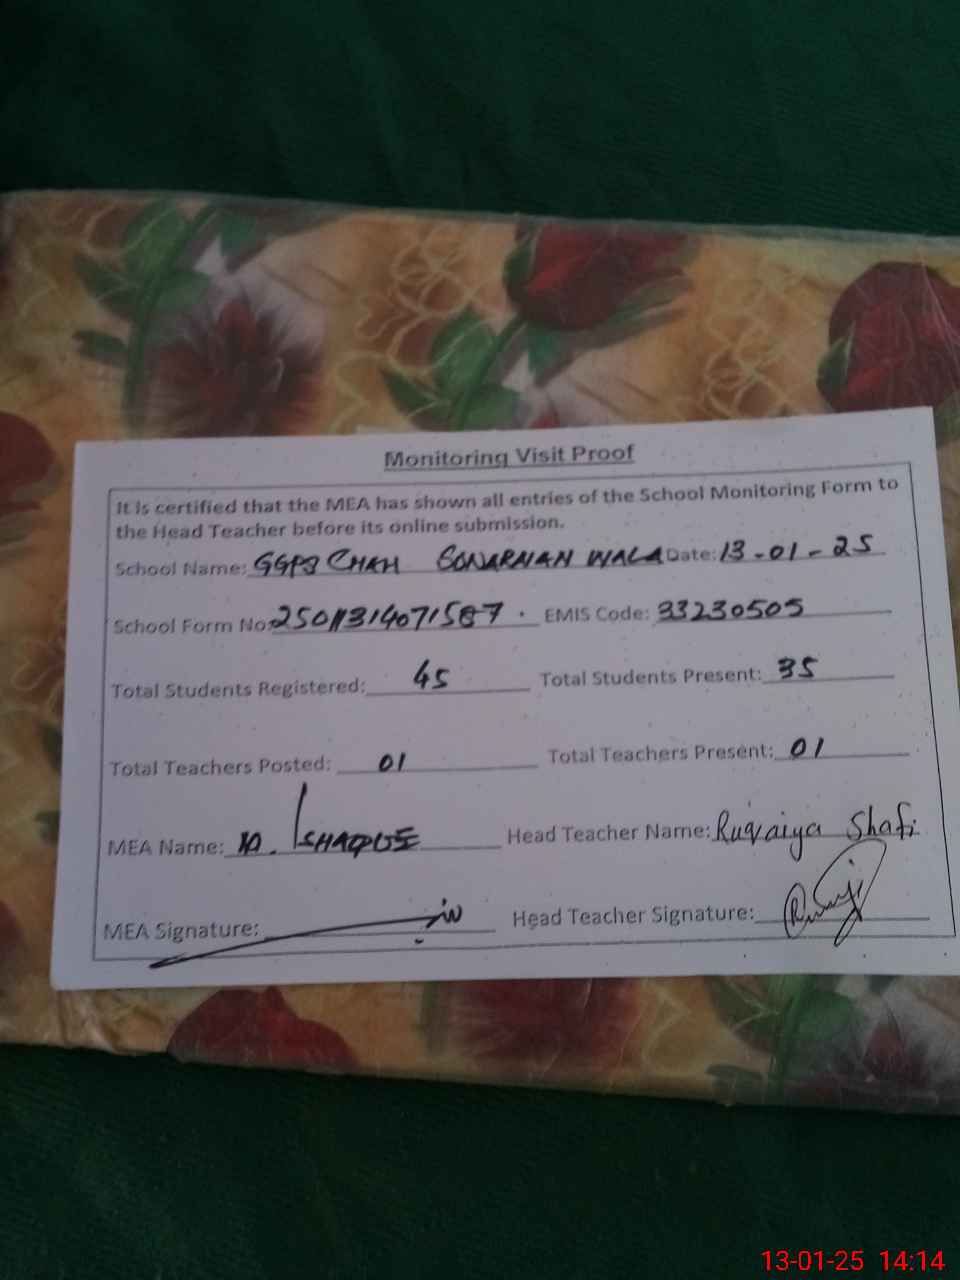 Monitoring Visit Proof
It is certified that the MEA has shown all entries of the School Monitoring Form to
the Head Teacher before its online submission.
School Name: GGPS CHAH SONARNAN WALA Date: 13-01-25
School Form No: 25011314071587. EMIS Code: 33230505
Total Students Registered: 45 Total Students Present: 35
Total Teachers Posted: 01 Total Teachers Present: 01
MEA Name: M. ISHAQUE Head Teacher Name: Ruqaiya Shafi
MEA Signature: Head Teacher Signature:
13-01-25 14:14